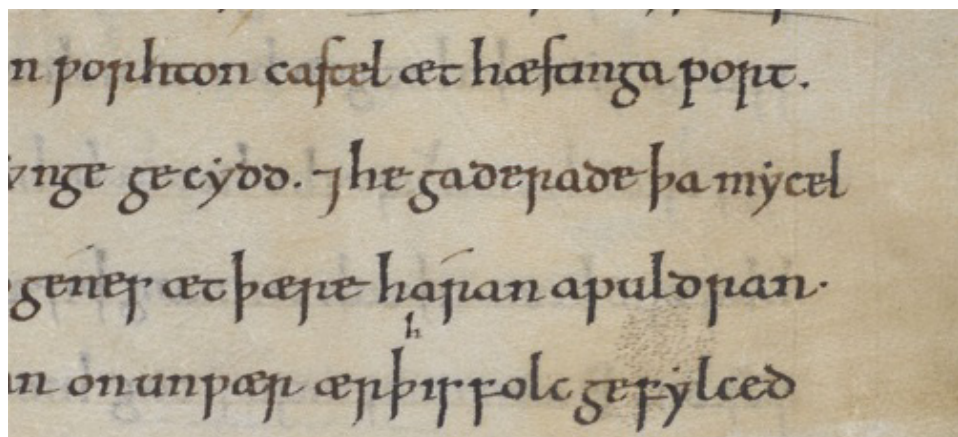 n ƿorhton castel æt hæstinga port.
ynge gecydd. ⁊ he gaderade þa mycel
genes æt þære haran apuldran.
an onunƿær ær þis folc gefylced